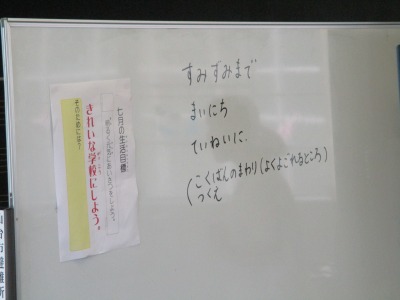 七月の生活目標
きれいな学校にしよう。
がっこう
そのためには?
すみずみまで
まいにち
ていねいに、
(こくばんのまわり(よくよごれるところ)
つくえ